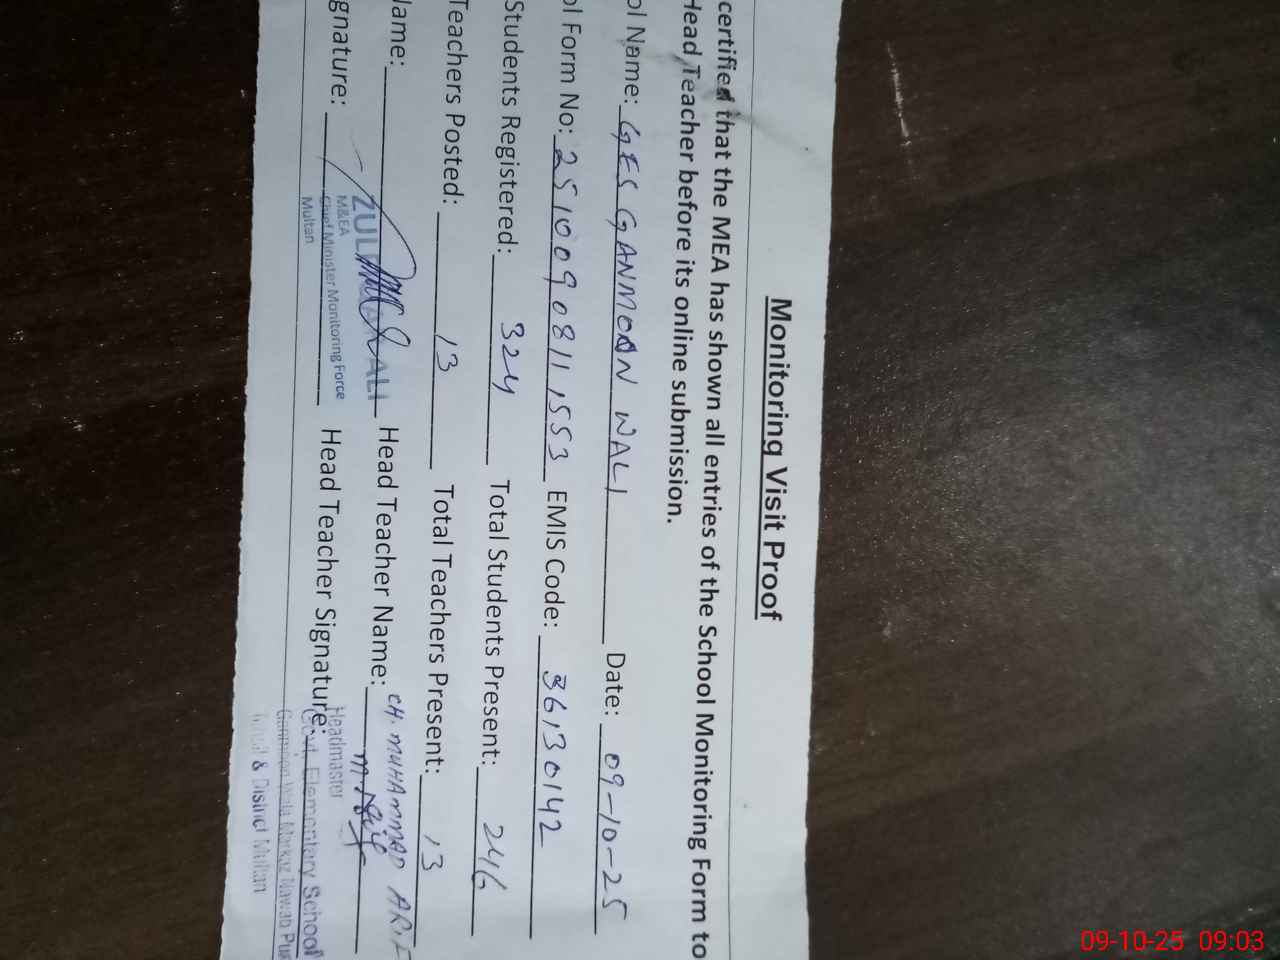 Monitoring Visit Proof
certified that the MEA has shown all entries of the School Monitoring Form to
Head Teacher before its online submission.
ol Name: GES GANMOON WALI Date: 09-10-25
ol Form No: 2510090811553 EMIS Code: 36130142
Students Registered: 324 Total Students Present: 246
Teachers Posted: 13 Total Teachers Present: 13
Name: ALI Head Teacher Name: CH. MUHAMMAD ARIF
gnature: Head Teacher Signature:
M&EA
Chief Minister Monitoring Force
Multan
Headmaster
Govt. Elementary School
Ganmoon Wala Markaz Nawab Pur
& District Multan
09-10-25 09:03